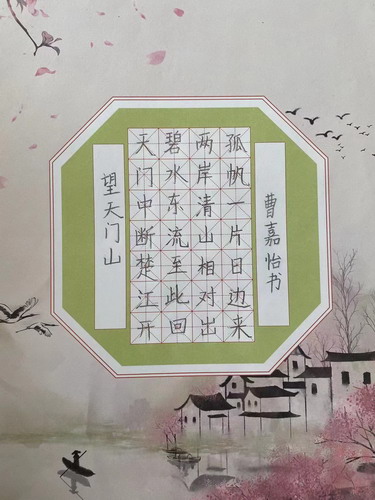 望天门山
天门中断楚江开
碧水东流至此回
两岸清山相对出
孤帆一片日边来
曹嘉怡书